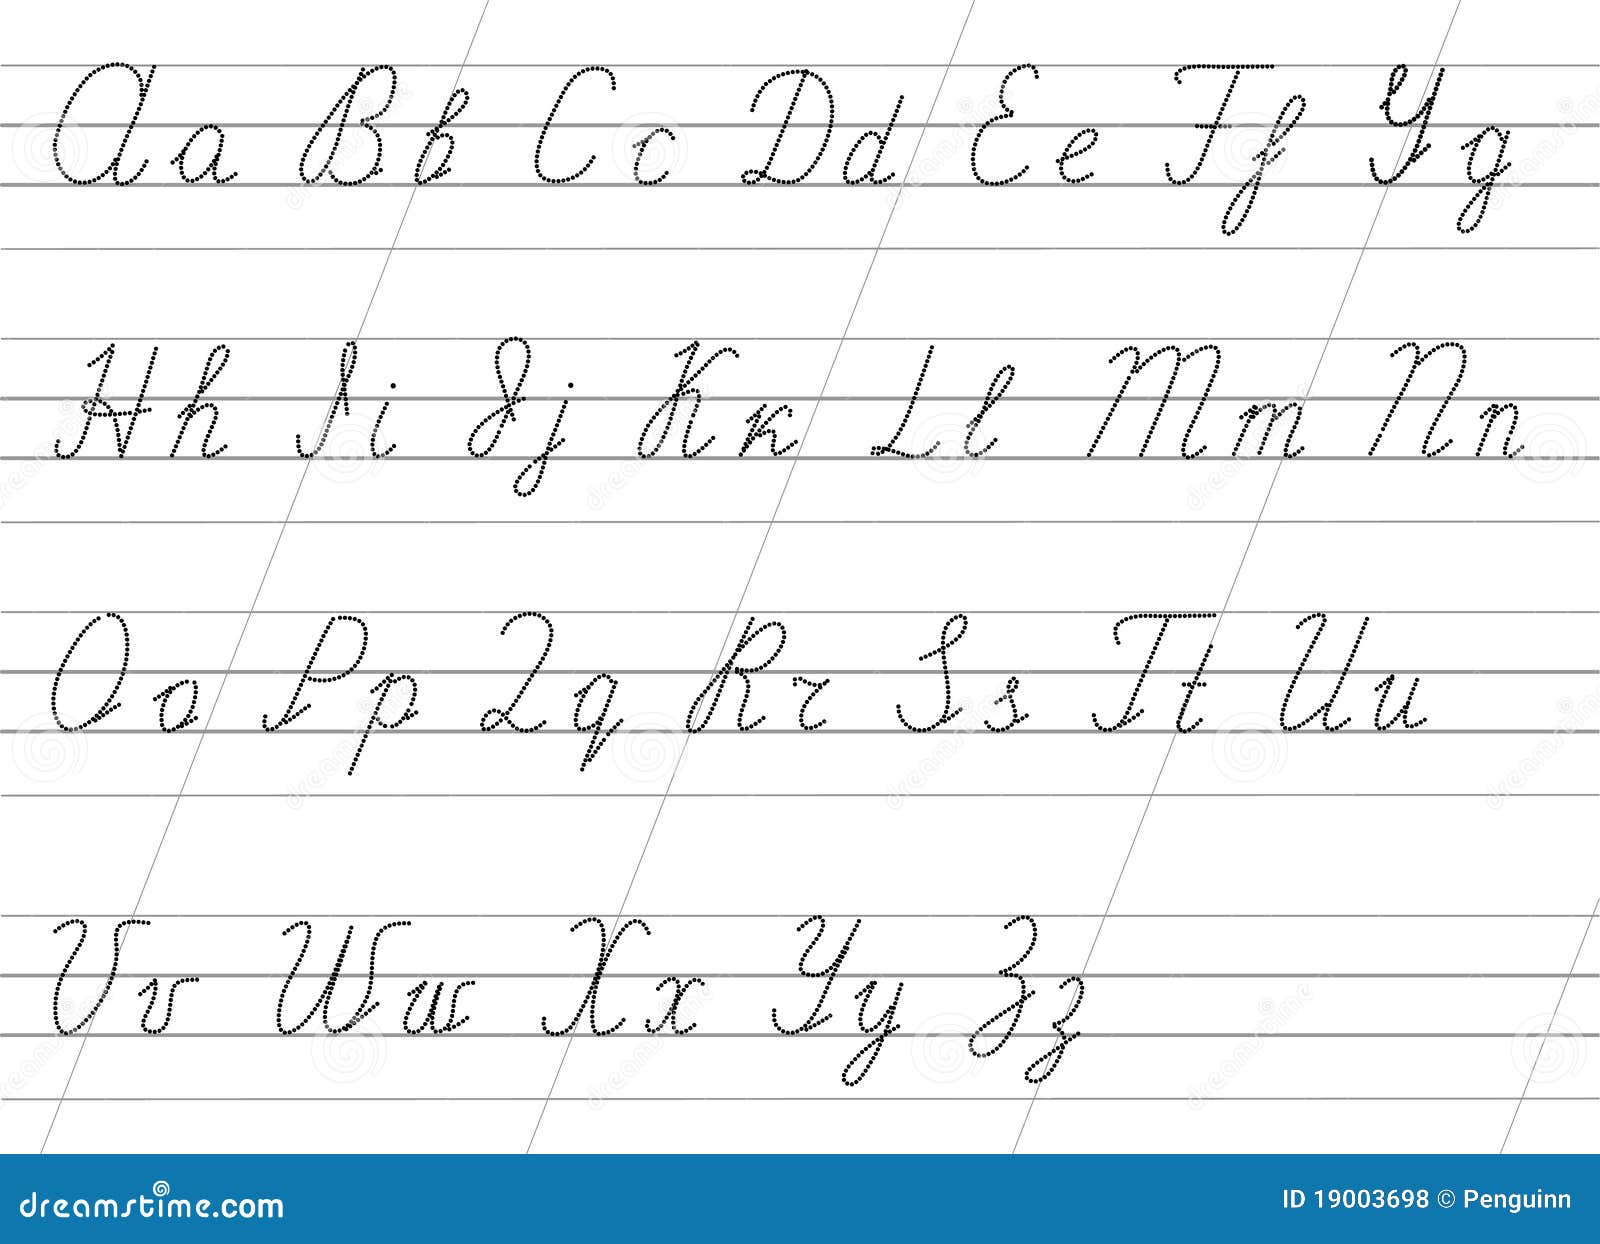 Aa Bb Cc Dd Ee Ff Gg
Hh Ii Jj Kk Ll Mm Nn
Oo Pp Qq Rr Ss Tt Uu
Vv Ww Xx Yy Zz
dreamstime.com
ID 19003698 © Penguinn